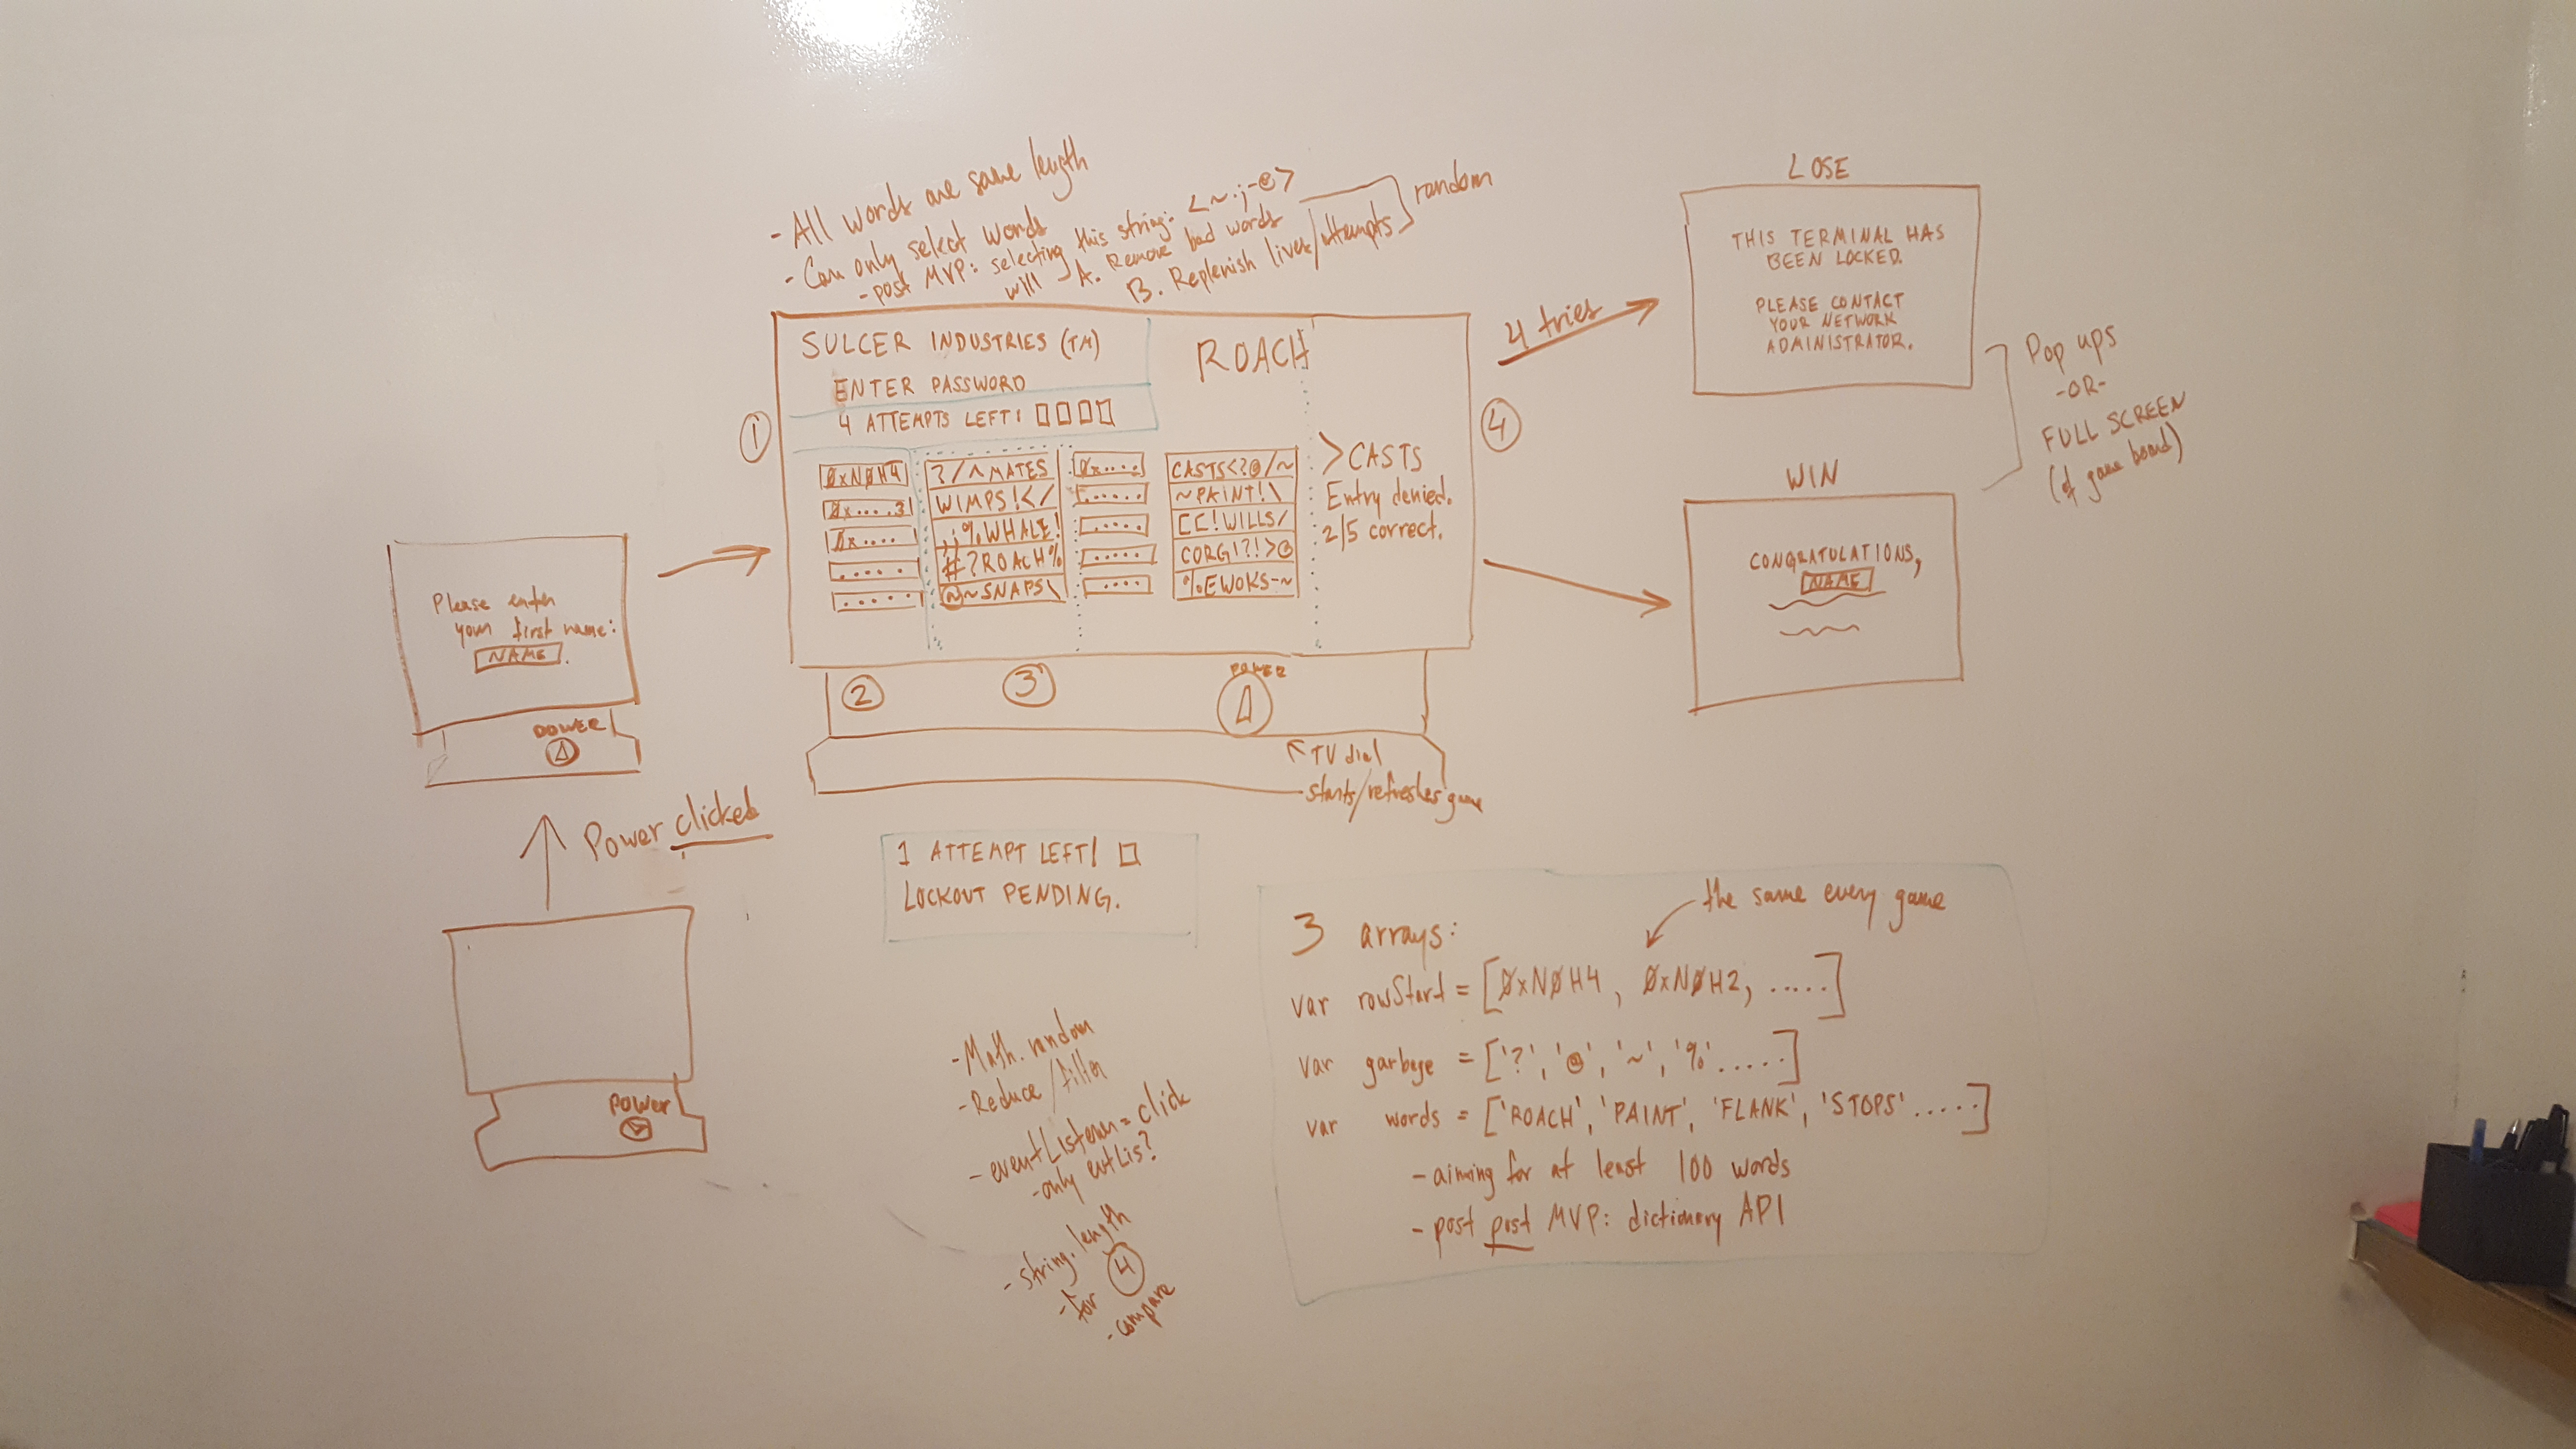 - All words are same length
- Can only select words
- post MVP: selecting this string: <~:;-@>
will
A. Remove bad words
B. Replenish lives/attempts
random
SULCER INDUSTRIES (TM)
ENTER PASSWORD
4 ATTEMPTS LEFT:
ROACH
1
0xN0H4
0x....3
0x....
.....
.....
?/^MATES
WIMPS!</
,;%WHALE!
#?ROACH%
@~SNAPS\
0x....
......
.....
.....
....
CASTS<?@/~
~PAINT!\
[[!WILLS/
CORGI?!>@
%EWOKS-~
>CASTS
Entry denied.
2/5 correct.
4
2
3
POWER
TV dial
starts/refreshes game
4 tries
LOSE
THIS TERMINAL HAS
BEEN LOCKED.
PLEASE CONTACT
YOUR NETWORK
ADMINISTRATOR.
WIN
CONGRATULATIONS,
NAME
Pop ups
-OR-
FULL SCREEN
(of game board)
Please enter
your first name:
NAME.
POWER
Power clicked
POWER
1 ATTEMPT LEFT!
LOCKOUT PENDING.
- Math.random
- Reduce/filter
- eventListener = click
- only evtLis?
- string.length
- for 4
- compare
3 arrays:
the same every game
var rowStart = [0xN0H4, 0xN0H2, .....]
var garbage = ['?', '@', '~', '%'.....]
var words = ['ROACH', 'PAINT', 'FLANK', 'STOPS'.....]
- aiming for at least 100 words
- post post MVP: dictionary API